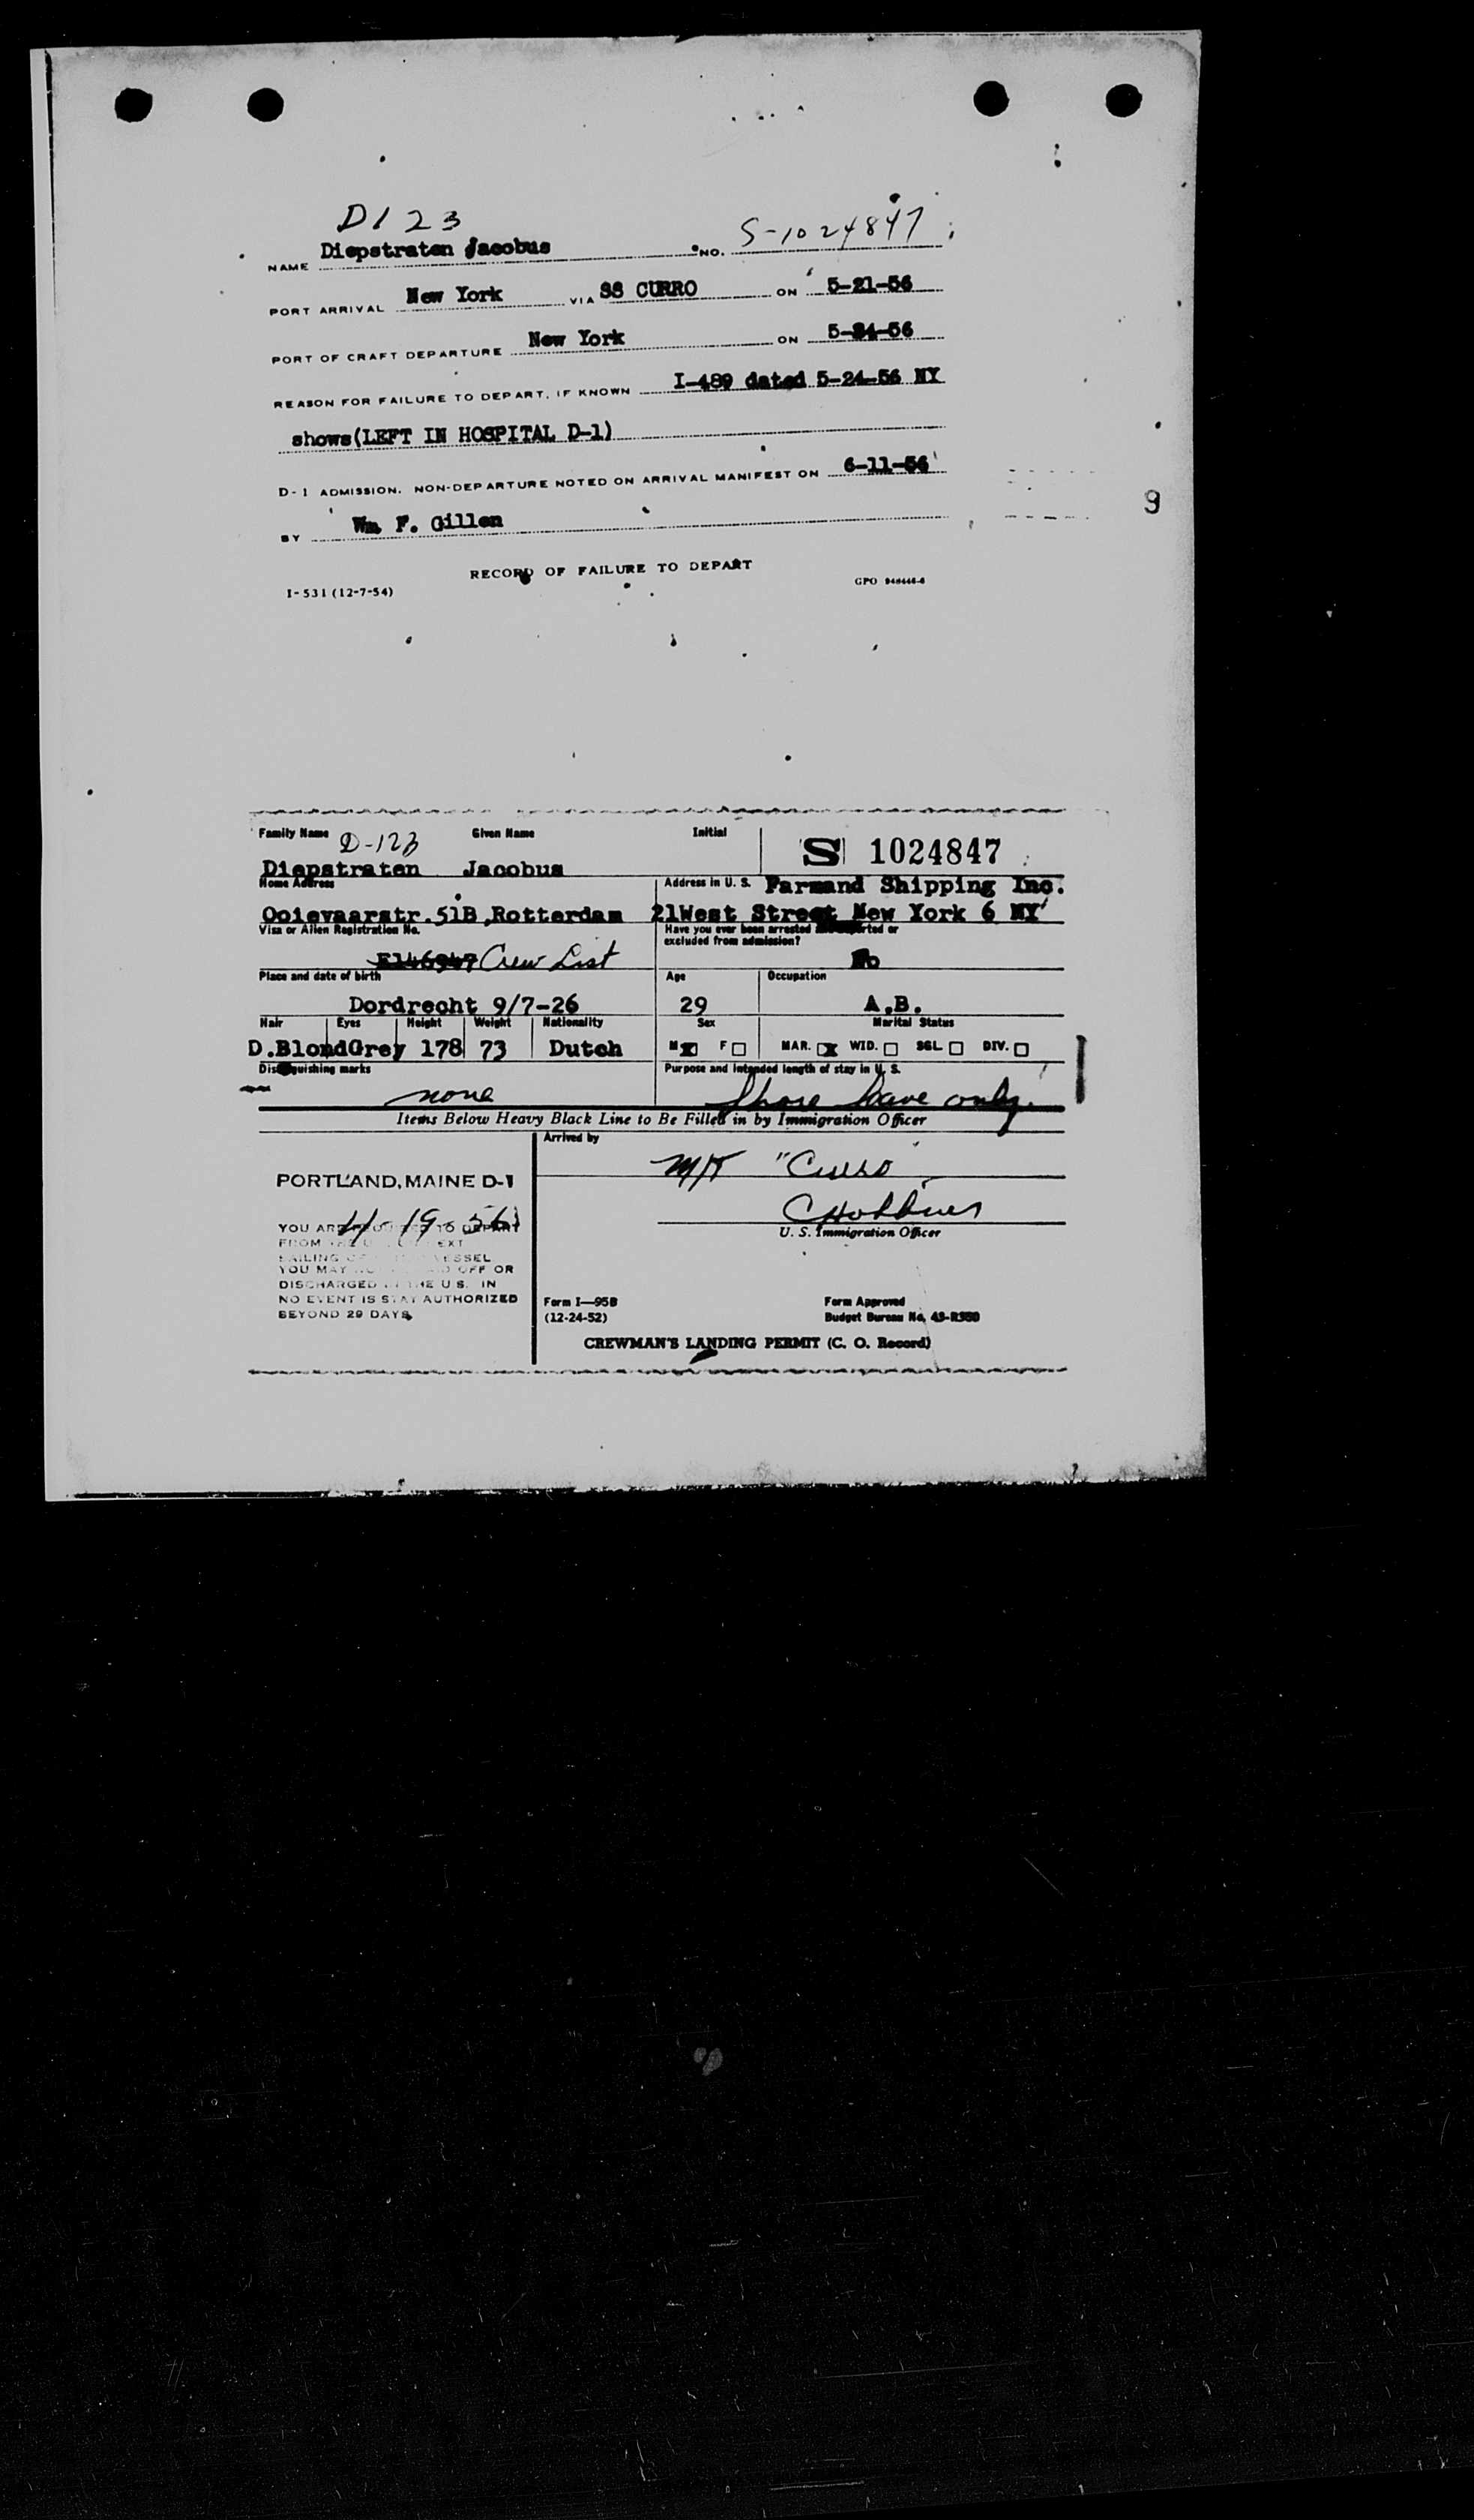 D123
NAME Diepstraten Jacobus NO. S-1024847
PORT ARRIVAL New York VIA SS CURRO ON 5-21-56
PORT OF CRAFT DEPARTURE New York ON 5-24-56
REASON FOR FAILURE TO DEPART, IF KNOWN I-489 dated 5-24-56 NY
shows(LEFT IN HOSPITAL D-1)
D-1 ADMISSION. NON-DEPARTURE NOTED ON ARRIVAL MANIFEST ON 6-11-56
9
BY Wm F. Gillen
RECORD OF FAILURE TO DEPART
I-531 (12-7-54) GPO
Family Name D-123 Given Name Initial
S 1024847
Diepstraten Jacobus
Home Address Address in U. S. Farmand Shipping Inc.
Ooievaarstr.51B,Rotterdam 21West Street New York 6 NY
Visa or Alien Registration No. Have you ever been arrested deported or
excluded from admission?
Crew List No
Place and date of birth Age Occupation
Dordrecht 9/7-26 29 A.B.
Hair Eyes Height Weight Nationality Sex Marital Status
D.Blond Grey 178 73 Dutch M X F MAR. X WID. SGL. DIV.
Distinguishing marks Purpose and intended length of stay in U. S.
none Shore leave only.
Items Below Heavy Black Line to Be Filled in by Immigration Officer
Arrived by
M/T "Curro"
PORTLAND, MAINE D-1
U. S. Immigration Officer
4-19-56
YOU ARE TO DEPART
FROM THE NEXT
SAILING VESSEL
YOU MAY OFF OR
DISCHARGED IN THE U.S. IN
NO EVENT IS STAY AUTHORIZED
BEYOND 29 DAYS
Form I—95B Form Approved
(12-24-52) Budget Bureau No. 43-R350
CREWMAN'S LANDING PERMIT (C. O. Record)